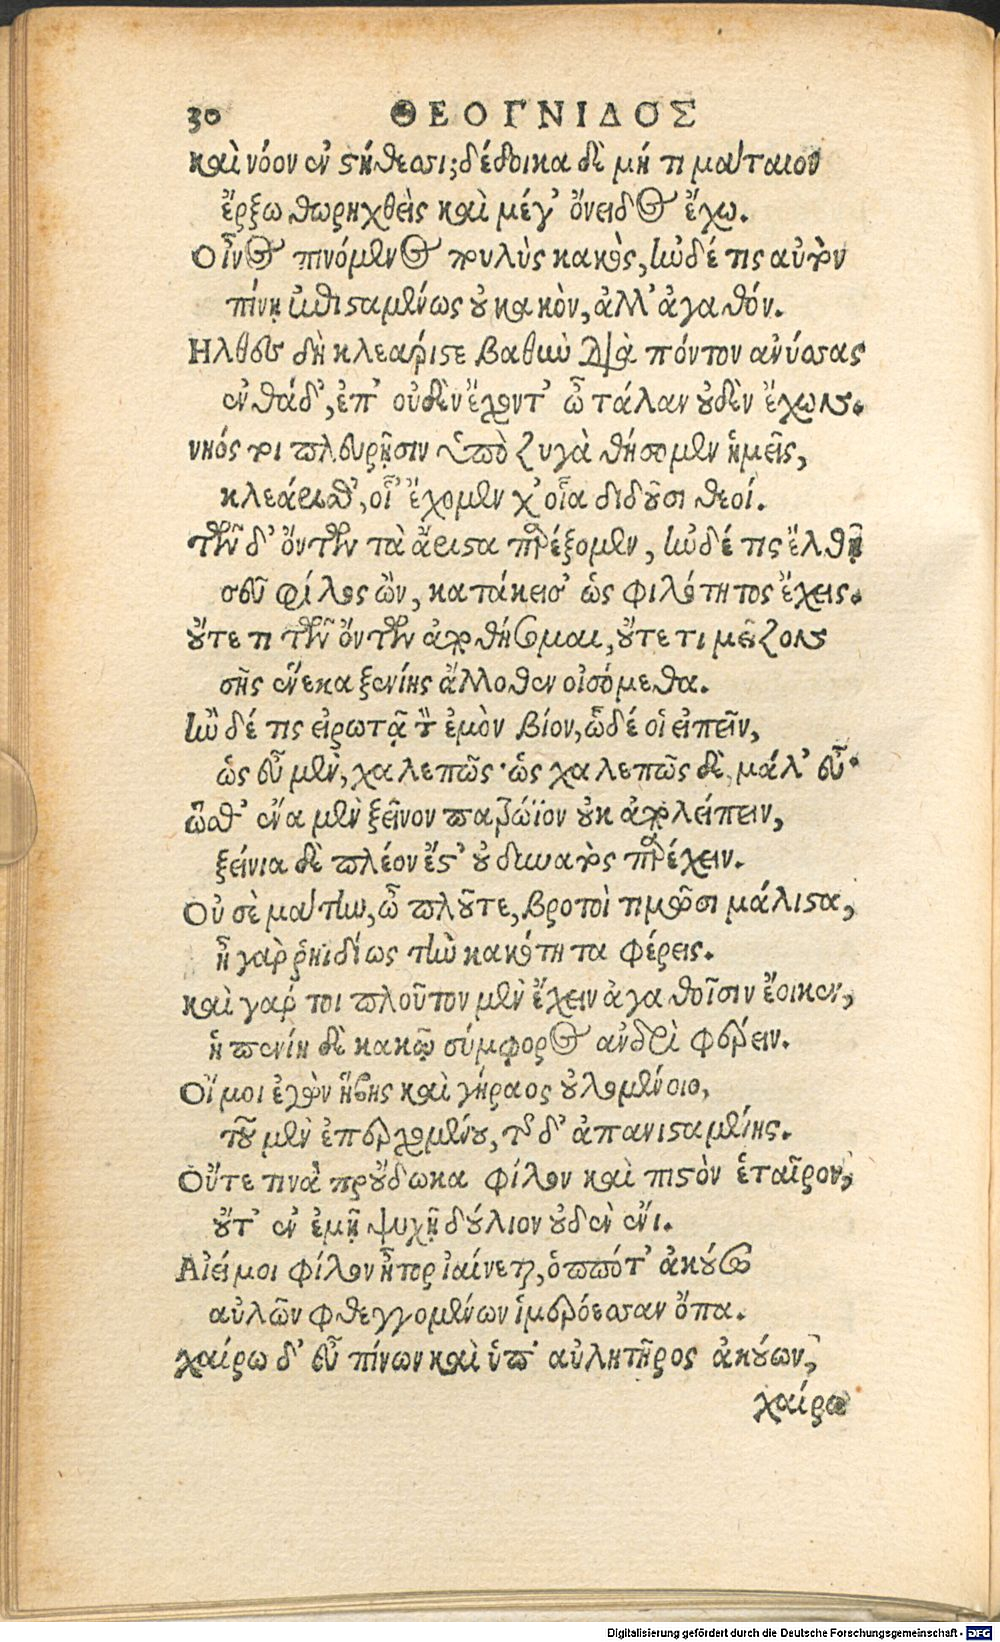 30 ΘΕΟΓΝΙΔΟΣ
καὶ νόον ἐν στήθεσσι; δέδοικα δὲ μή τι μάταιον
ἔρξω θωρηχθεὶς καὶ μέγ' ὄνειδος ἔχω.
Οἶνος πινόμενος πουλὺς κακός, ἢν δέ τις αὐτὸν
πίνῃ ἐπισταμένως οὐ κακὸν, ἀλλ' ἀγαθόν.
Ηλθες δὴ κλεάριστε βαθὺν διὰ πόντον ἀνύσσας
ἐνθάδ', ἐπ' οὐδὲν ἔχοντ' ὦ τάλαν οὐδὲν ἔχων.
νηός τοι πλευρῇσιν ὑπὸ ζυγὰ θήσομεν ἡμεῖς,
κλεάρισθ', οἷ' ἔχομεν χ' οἷα διδοῦσι θεοί.
τῶν δ' ὄντων τὰ ἄριστα παρέξομεν, ἢν δέ τις ἔλθῃ
σεῦ φίλος ὢν, κατάκεισ' ὡς φιλότητος ἔχεις.
οὔτε τι τῶν ὄντων ἀποθήσομαι, οὔτε τι μεῖζον
σῆς ἕνεκα ξενίης ἄλλοθεν οἰσόμεθα.
ἢν δέ τις εἰρωτᾷ τὸν ἐμὸν βίον, ὧδέ οἱ εἰπεῖν,
ὡς εὖ μὲν, χαλεπῶς· ὡς χαλεπῶς δὲ, μάλ' εὖ·
ὥσθ' ἕνα μὲν ξεῖνον πατρώϊον οὐκ ἀπολείπειν,
ξείνια δὲ πλέον ἔστ' οὐ δυνατὸς παρέχειν.
Οὐ σὲ μάτην, ὦ πλοῦτε, βροτοὶ τιμῶσι μάλιστα,
ἦ γὰρ ῥηϊδίως τὴν κακότητα φέρεις.
καὶ γάρ τοι πλοῦτον μὲν ἔχειν ἀγαθοῖσιν ἔοικεν,
ἡ πενίη δὲ κακῷ σύμφορος ἀνδρὶ φέρειν.
Οἴ μοι ἐγὼν ἥβης καὶ γήραος οὐλομένοιο,
τοῦ μὲν ἐπερχομένου, τῆς δ' ἀπανισταμένης.
Οὔτε τινὰ προὔδωκα φίλον καὶ πιστὸν ἑταῖρον,
οὔτ' ἐν ἐμῇ ψυχῇ δούλιον οὐδὲν ἔνι.
Αἰεί μοι φίλον ἦτορ ἰαίνεται, ὁππότ' ἀκούσω
αὐλῶν φθεγγομένων ἱμερόεσσαν ὄπα.
χαίρω δ' εὖ πίνων καὶ ὑπ' αὐλητῆρος ἀκούων,
χαίρω
Digitalisierung gefördert durch die Deutsche Forschungsgemeinschaft - DFG